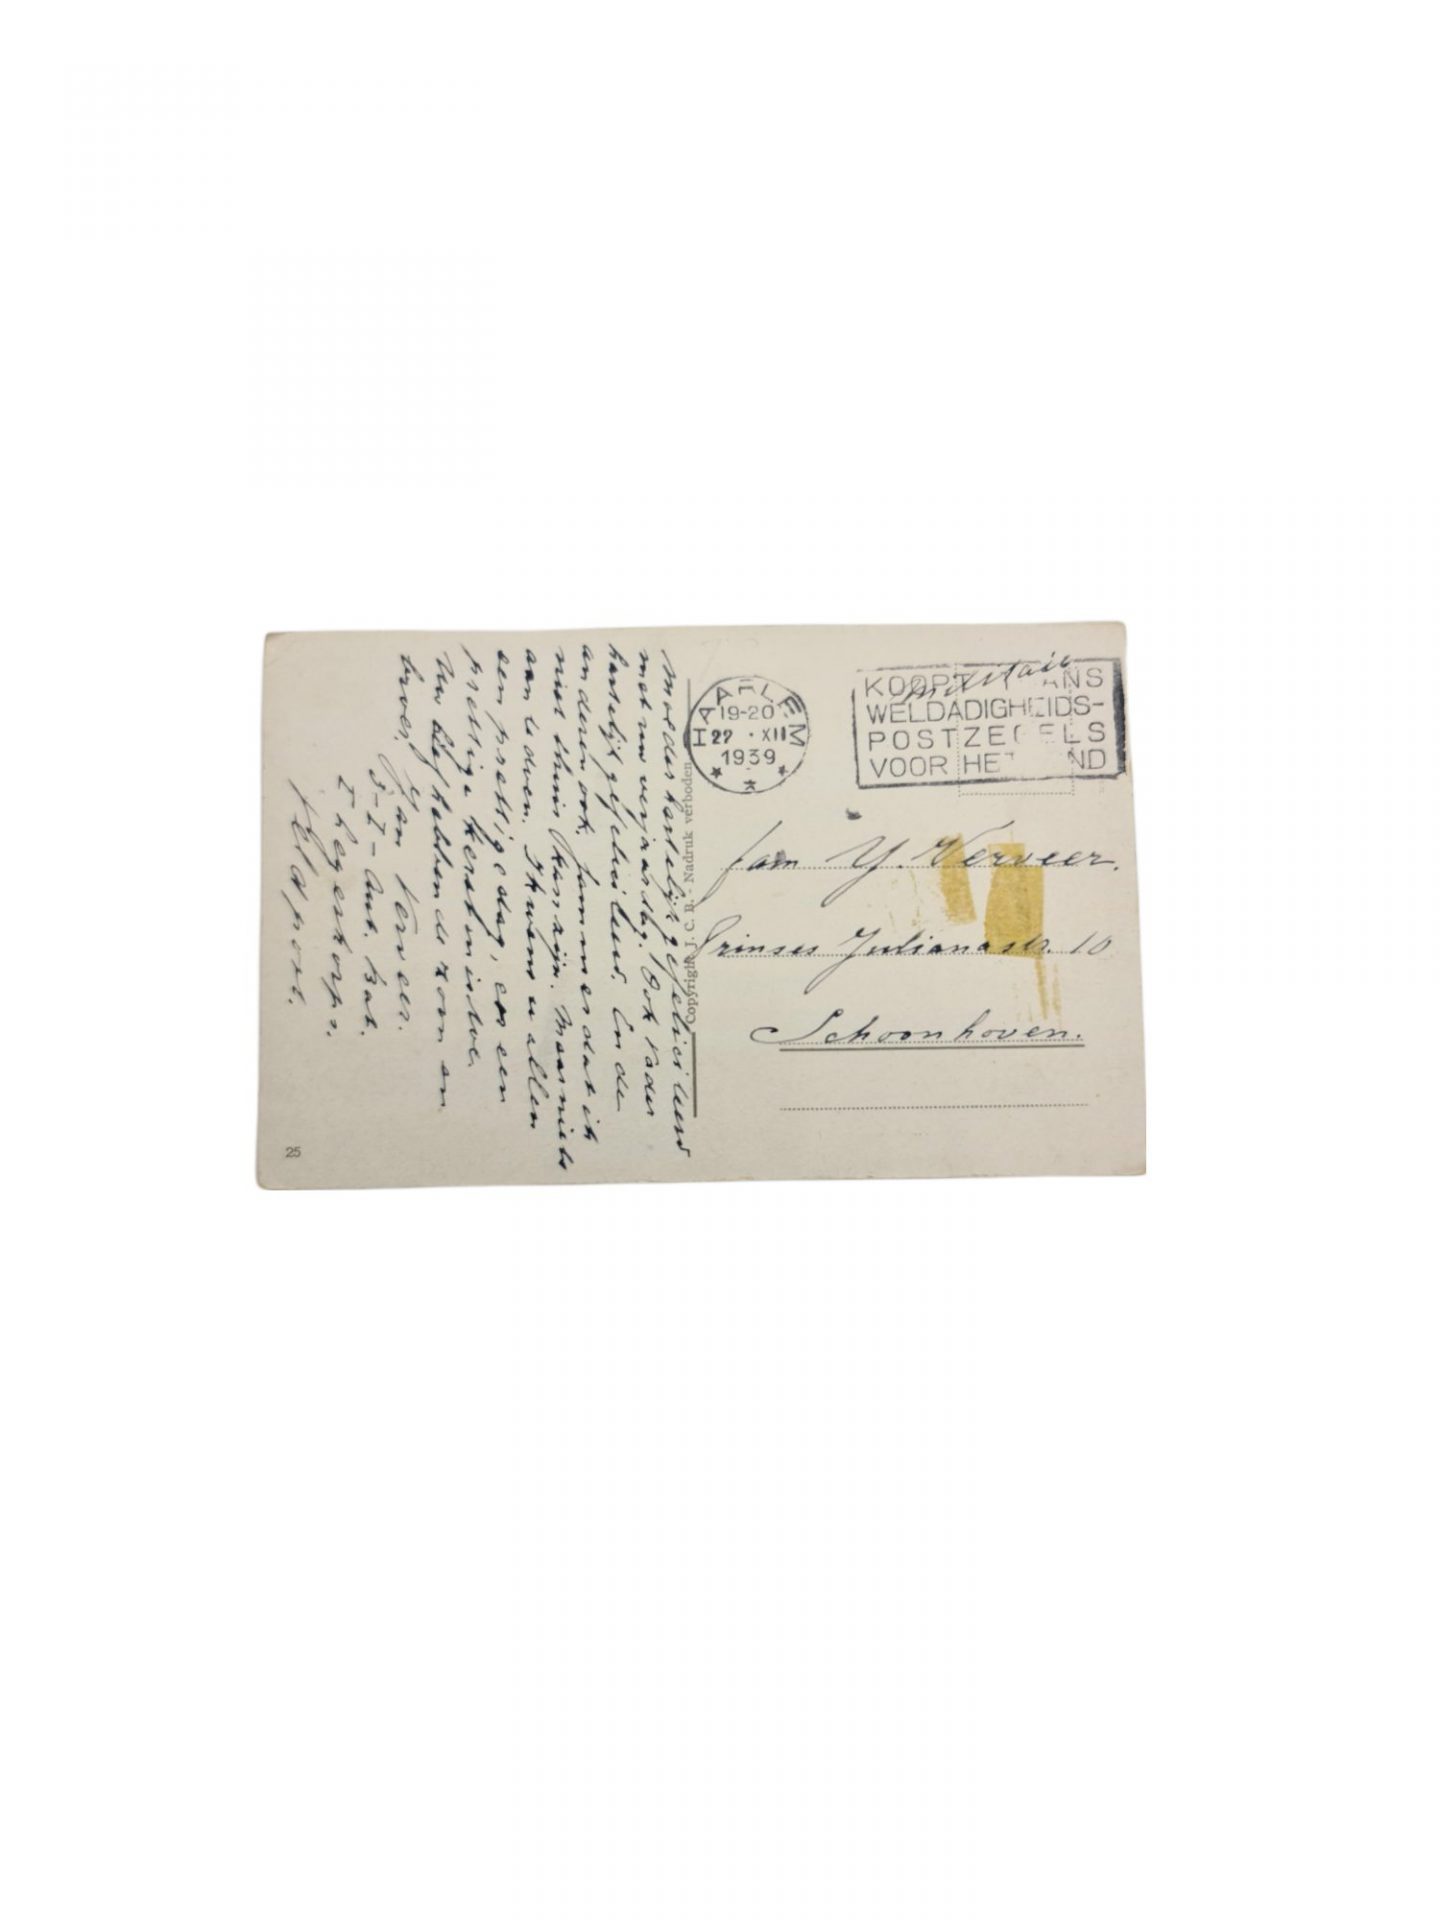 Moeder hartelijk gefeliciteerd
met uw verjaardag. Ook Vader
hartelijk gefeliciteerd. En de
anderen ook. Jammer dat ik
niet thuis kan zijn. Maar niets
aan te doen. Ik wens u allen
een prettige dag, en een
prettige kerstmis toe.
Uw liefhebbende zoon en
broer,
Jan Verveer.
5-I-Aut. Bat.
I Legerkorps.
Veldpost.
25
Copyright J. C. B. - Nadruk verboden
HAARLEM
19-20
22 · XII
1939
militair
KOOPT
WELDADIGHEIDS-
POSTZEGELS
VOOR HET
fam Y. Verveer.
Prinses Julianastr. 10
Schoonhoven.